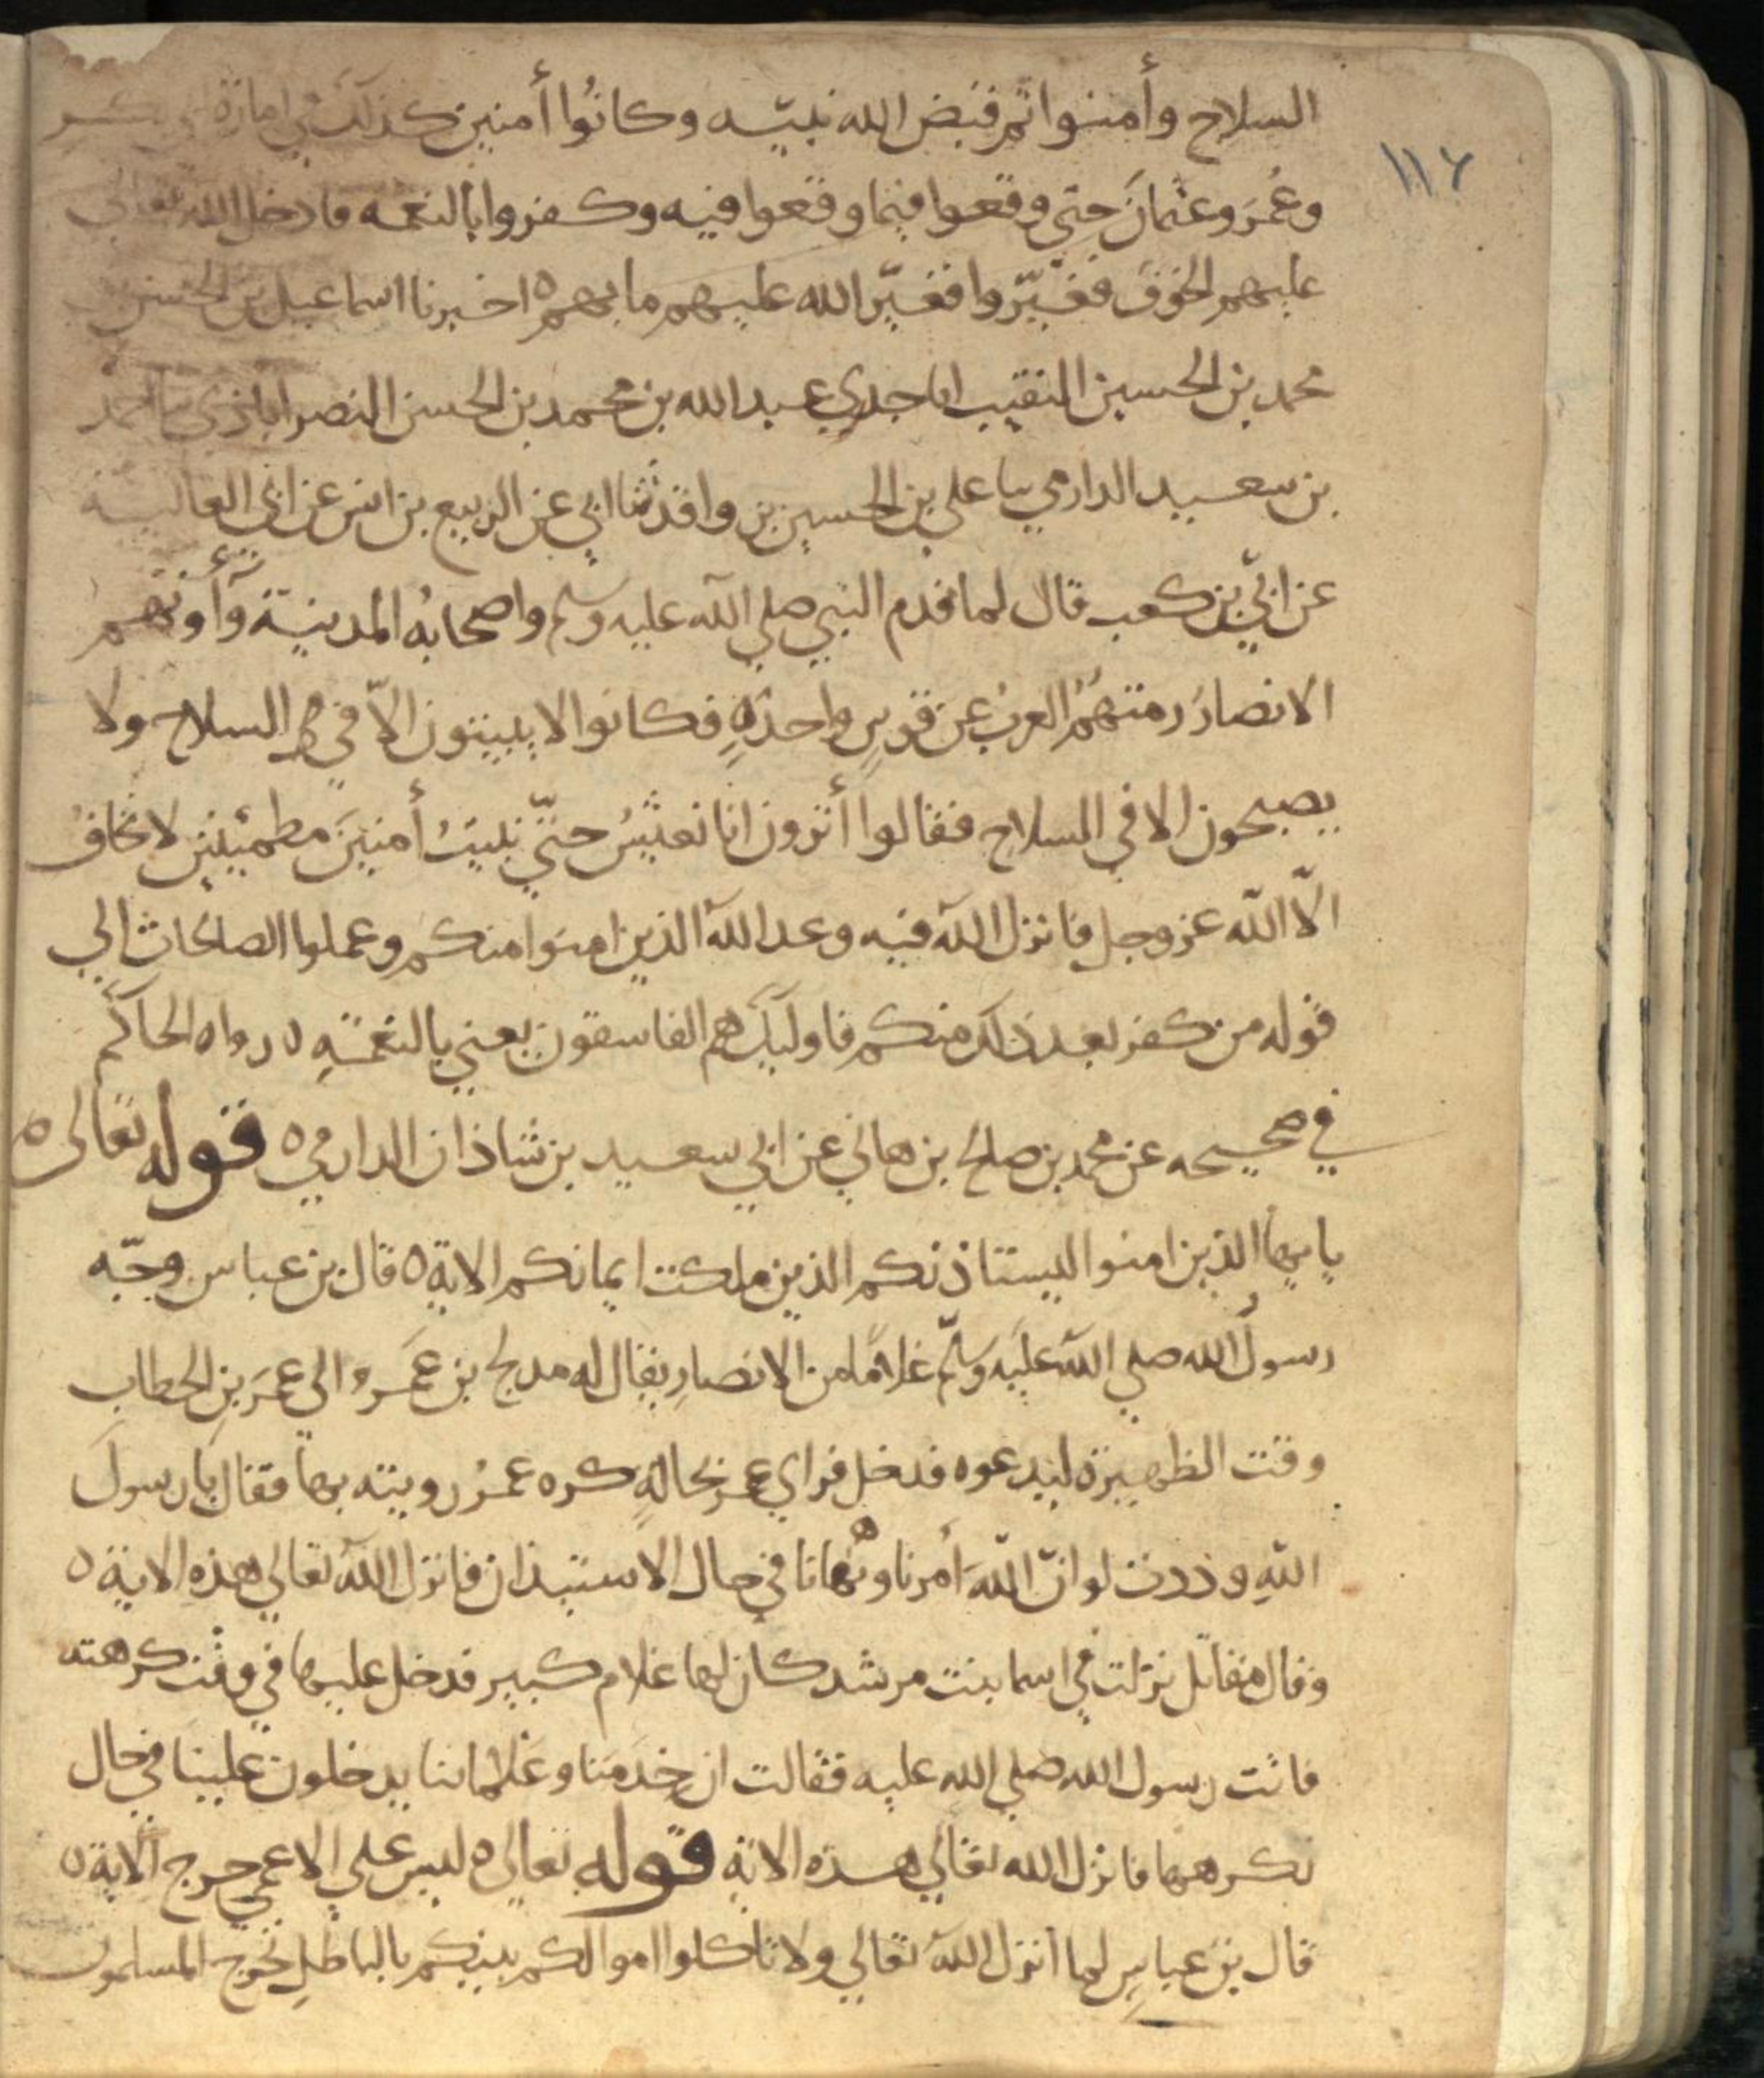 ١١٦
السلاح وأمنوا ثم قبض الله نبيه وكانوا أمنين كذلك في امارة ابي بكر
وعُمَر وعثمانَ حتى وقعوا فيما وقعوا فيه وكفروا بالنعمه فادخل الله تعالى
عليهم الخوف فغيّروا فغيّر الله عليهم ما بهم ٥ اخبرنا اسماعيل بن الحسن بن
محمد بن الحسين النقيب انا جدي عبد الله بن محمد بن الحسن النصراباذي نا احمد
بن سعيد الدارمي نا علي بن الحسين بن واقد ثنا ابي عن الربيع بن انس عن ابي العالية
عن ابيّ بن كعب قال لما قدم النبي صلي الله عليه وسلم واصحابهُ المدينة وآوتهم
الانصارُ رمتهمُ العربُ عن قوسٍ واحدةٍ فكانوا لا يبيتون الاّ في السلاح ولا
يصبحون الا في السلاح فقالوا أترون انا نعيشُ حتّي نبيتُ أمنينَ مطمئنين لا نخافُ
الاّ الله عز وجل فانزل الله فيه وعد الله الذين امنوا منكم وعملوا الصالحات الي
قوله من كفر بعد ذلك منكم فاوليك هم الفاسقون يعني بالنعمةِ ٥ رواه الحاكم
في صحيحه عن محمد بن صالح بن هاني عن ابي سعيد بن شاذان الدارمي ٥ قوله تعالى ٥
يايها الذين امنوا ليستاذنكم الذين ملكت ايمانكم الاية ٥ قال بن عباس وجّه
رسولُ الله صلي الله عليه وسلّم غلامًا من الانصارِ يقال له مدلج بن عَمرو الى عمَر بنِ الخطاب
وقت الظهيرة ليدعوه فدخل فراي عمر بحالةٍ كره عمرُ رويته بها فقال يا رسولَ
اللهِ وددت لو انّ اللهَ أمرنا ونهانا في حال الاستيذان فانزل اللهُ تعالي هذه الاية ٥
وقال مقاتل نزلت في اسما بنت مرشد كان لها غلام كبير فدخل عليها في وقت كرهته
فاتت رسول الله صلي الله عليه فقالت ان خدمَنا وغلماننا يدخلون علينا في حال
نكرهها فانزل الله تعالي هذه الاية قوله تعالى ٥ ليس علي الاعمي حرج الاية ٥
قال بن عباسٍ لما أنزل اللهُ تعالي ولا تاكلوا اموالكم بينكم بالباطلِ تحرج المسلمون